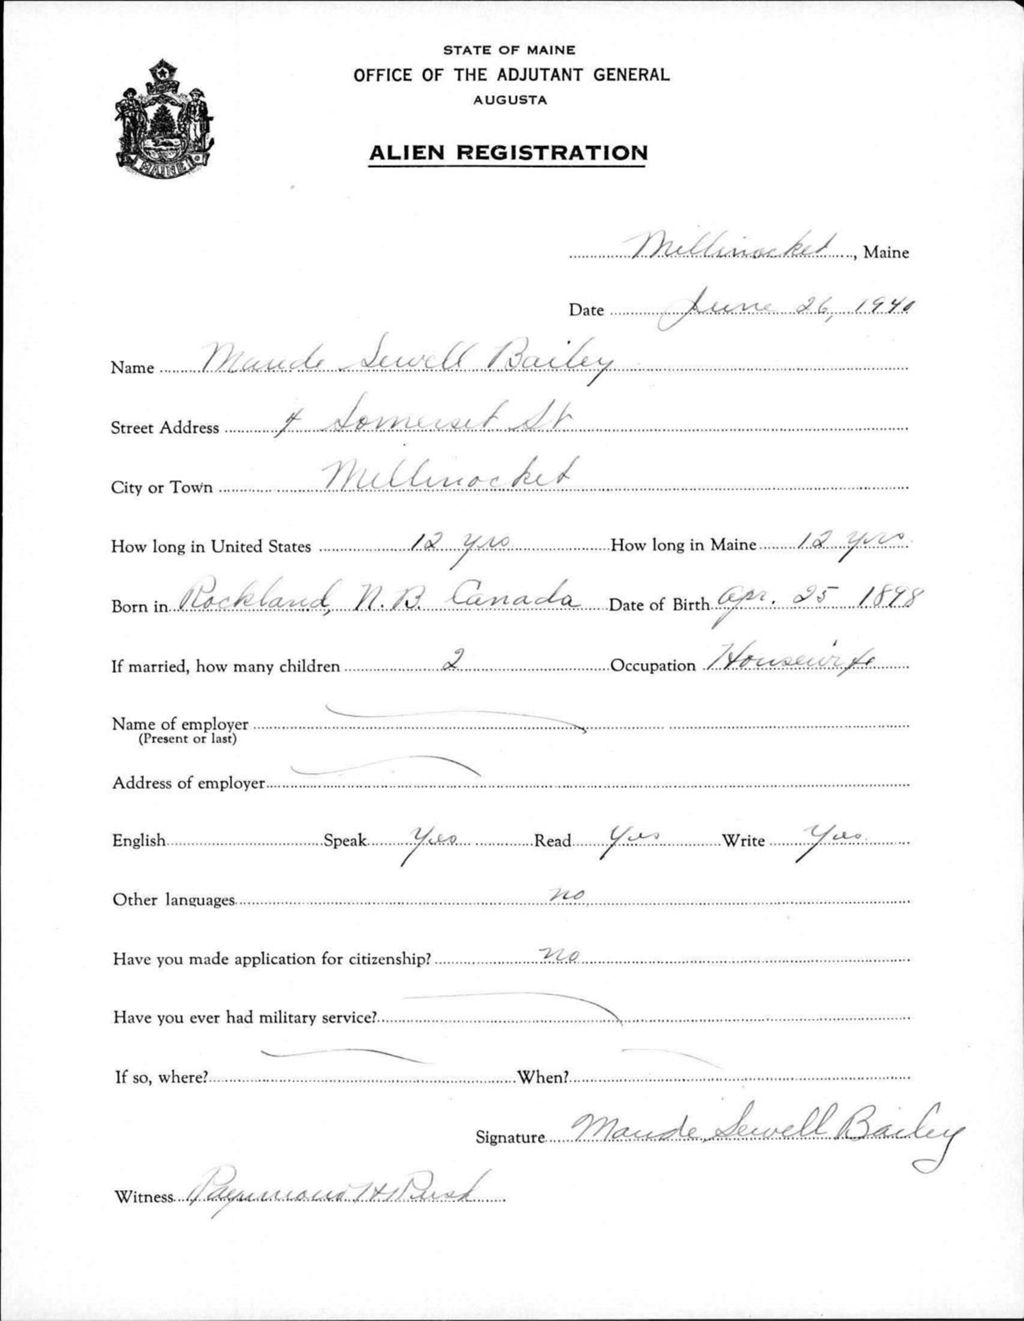 STATE OF MAINE
OFFICE OF THE ADJUTANT GENERAL
AUGUSTA
ALIEN REGISTRATION
MAINE
Millinocket, Maine
Date June 26, 1940
Name Maude Sewell Bailey
Street Address 4 Somerset St
City or Town Millinocket
How long in United States 12 yrs How long in Maine 12 yrs
Born in Rockland, N.B. Canada Date of Birth Apr. 25 1898
If married, how many children 2 Occupation Housewife
Name of employer
(Present or last)
Address of employer
English Speak Yes Read Yes Write Yes
Other languages no
Have you made application for citizenship? no
Have you ever had military service?
If so, where? When?
Signature Maude Sewell Bailey
Witness Raymond H